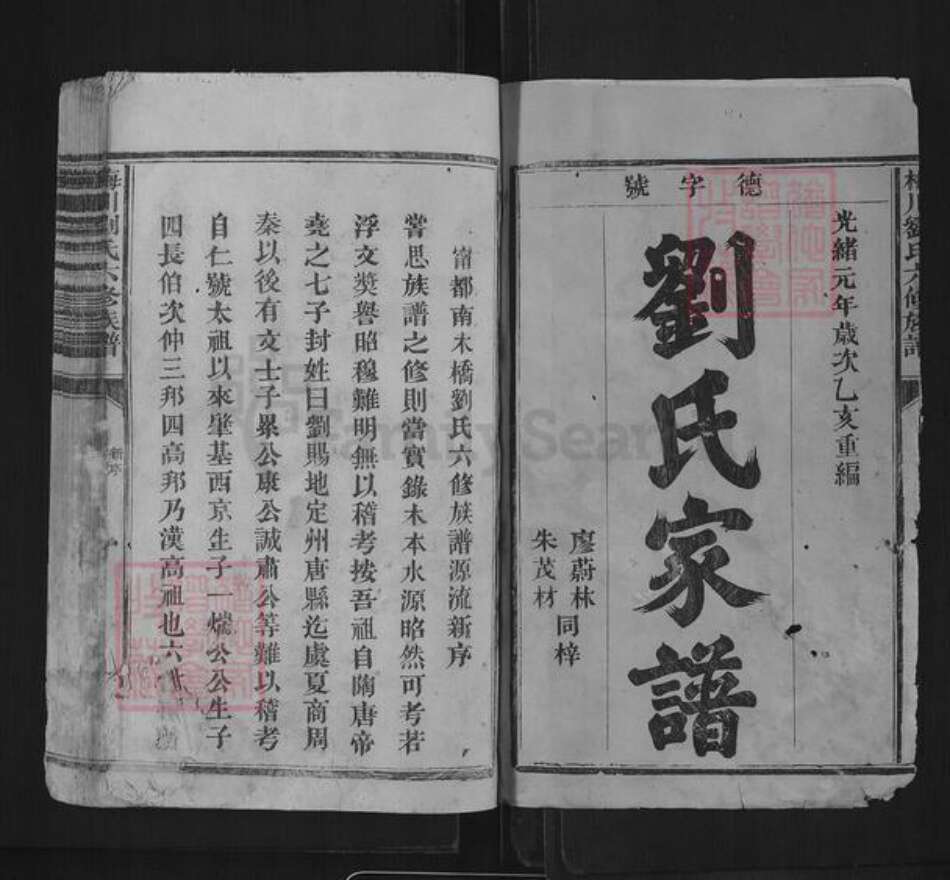 梅川劉氏六修族譜
德字號
光緒元年歲次乙亥重編
劉氏家譜
廖蔚林
朱茂材
同梓
甯都南木橋劉氏六修族譜源流新序
嘗思族譜之修則當實錄木本水源昭然可考若
浮文獎譽昭穆難明無以稽考按吾祖自陶唐帝
堯之七子封姓曰劉賜地定州唐縣迄虞夏商周
秦以後有文士子累公康公誠肅公等難以稽考
自仁號太祖以來肇基西京生子一煓公公生子
四長伯次仲三邦四高邦乃漢高祖也六
梅川劉氏六修族譜
新序
FamilySearch